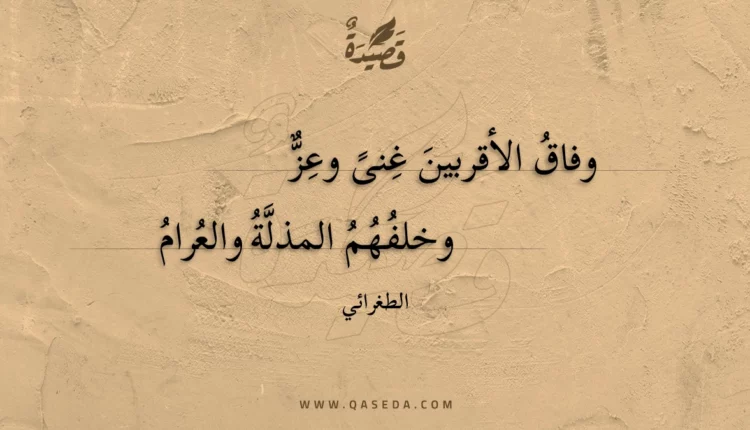 قَصِيدَةٌ
وفاقُ الأقربينَ غِنىً وعِزٌّ
وخلفُهُمُ المذلَّةُ والعُرامُ
الطغرائي
WWW.QASEDA.COM